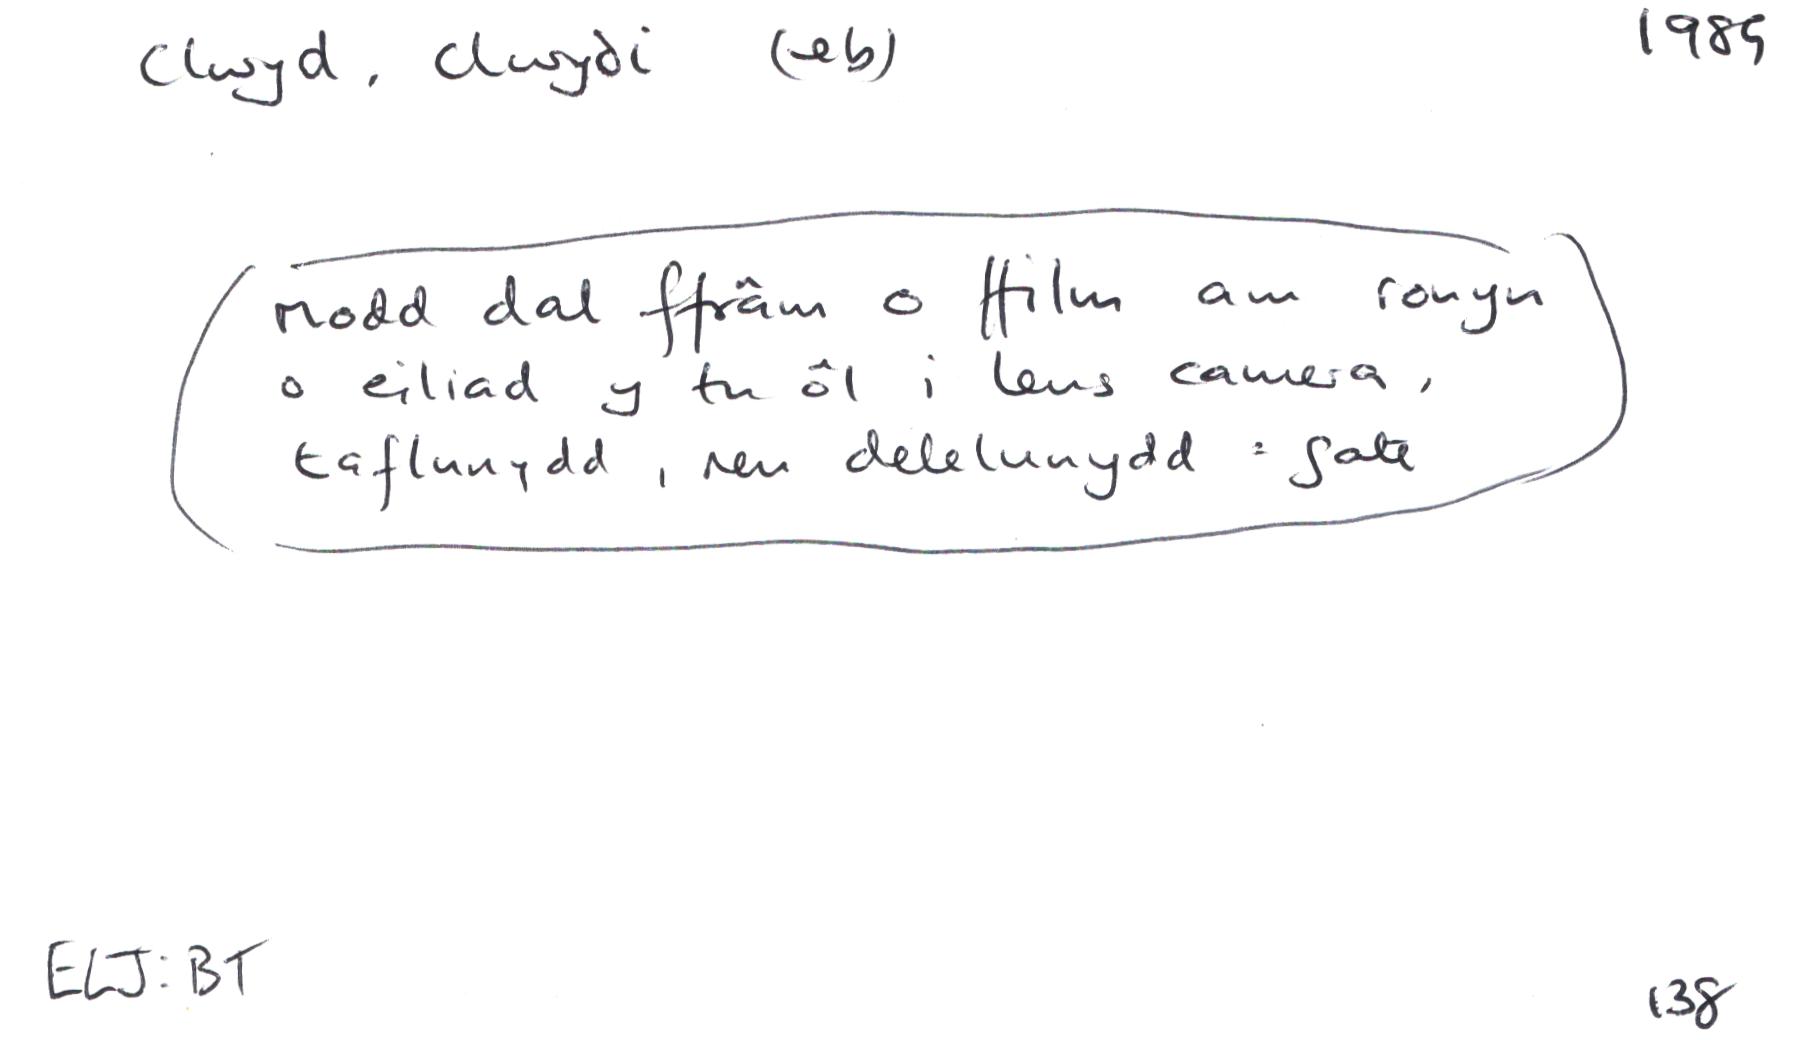 clwyd, clwydi (eb) 1989
modd dal ffrâm o ffilm am ronyn
o eiliad y tu ôl i lens camera,
taflunydd, neu delelunydd : gate
ELJ:BT 138